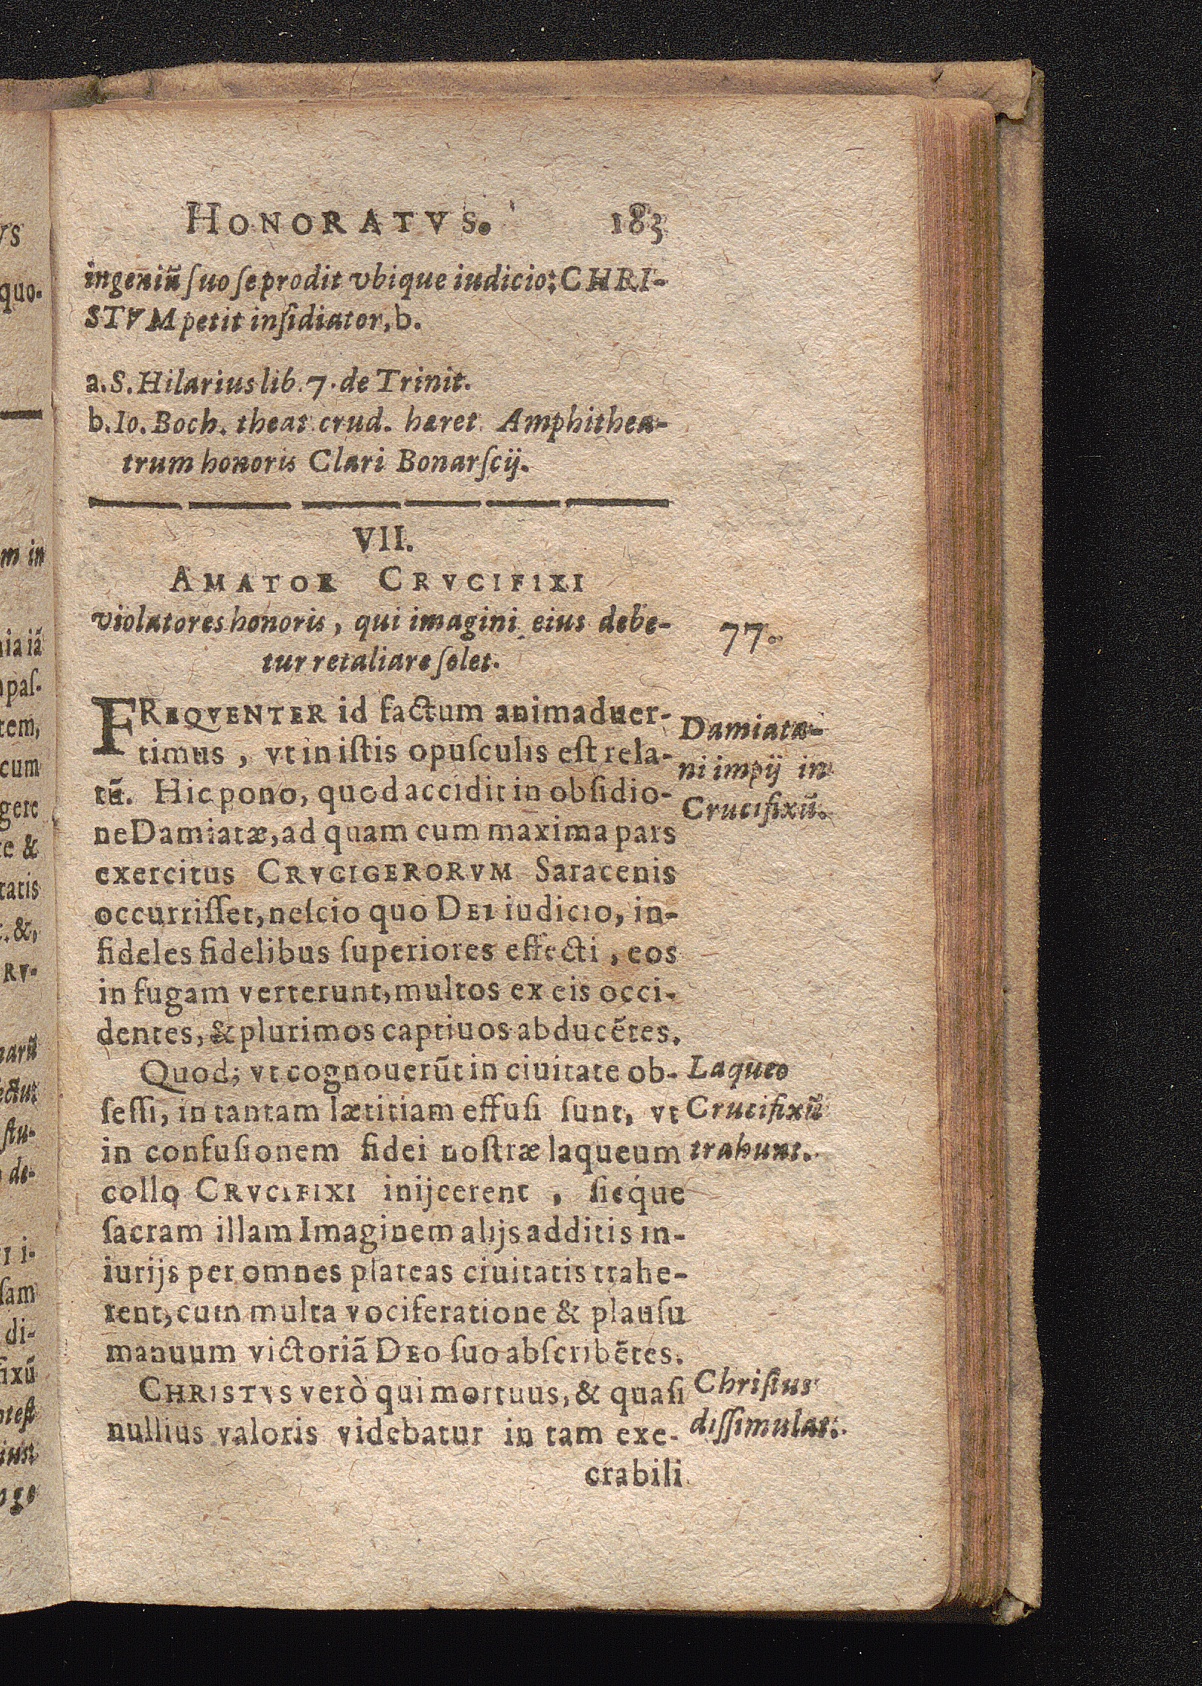 HONORATVS. 183
ingeniū ſuo ſe prodit vbique iudicio: CHRI-
STVM petit inſidiator, b.
a. S. Hilarius lib. 7. de Trinit.
b. Io. Boch. theat. crud. hæret. Amphithea-
trum honoris Clari Bonarſcij.
VII.
AMATOR CRVCIFIXI
violatores honoris, qui imagini eius debe-
tur retaliare ſolet.
77.
FREQVENTER id factum animaduer-
timus, vt in iſtis opuſculis eſt rela-
tū. Hic pono, quod accidit in obſidio-
ne Damiatæ, ad quam cum maxima pars
exercitus CRVCIGERORVM Saracenis
occurriſſet, neſcio quo DEI iudicio, in-
fideles fidelibus ſuperiores effecti, eos
in fugam verterunt, multos ex eis occi-
dentes, & plurimos captiuos abducētes.
Damiatæ-
ni impij in
Crucifixū.
Quod; vt cognouerūt in ciuitate ob-
ſeſſi, in tantam lætitiam effuſi ſunt, vt
in confuſionem fidei noſtræ laqueum
collo CRVCIFIXI inijcerent, ſicque
ſacram illam Imaginem alijs additis in-
iurijs per omnes plateas ciuitatis trahe-
rent, cum multa vociferatione & plauſu
manuum victoriā DEO ſuo abſcribētes.
Laqueo
Crucifixū
trahunt.
CHRISTVS verò qui mortuus, & quaſi
nullius valoris videbatur in tam exe-
crabili
Chriſtus
diſſimulat.